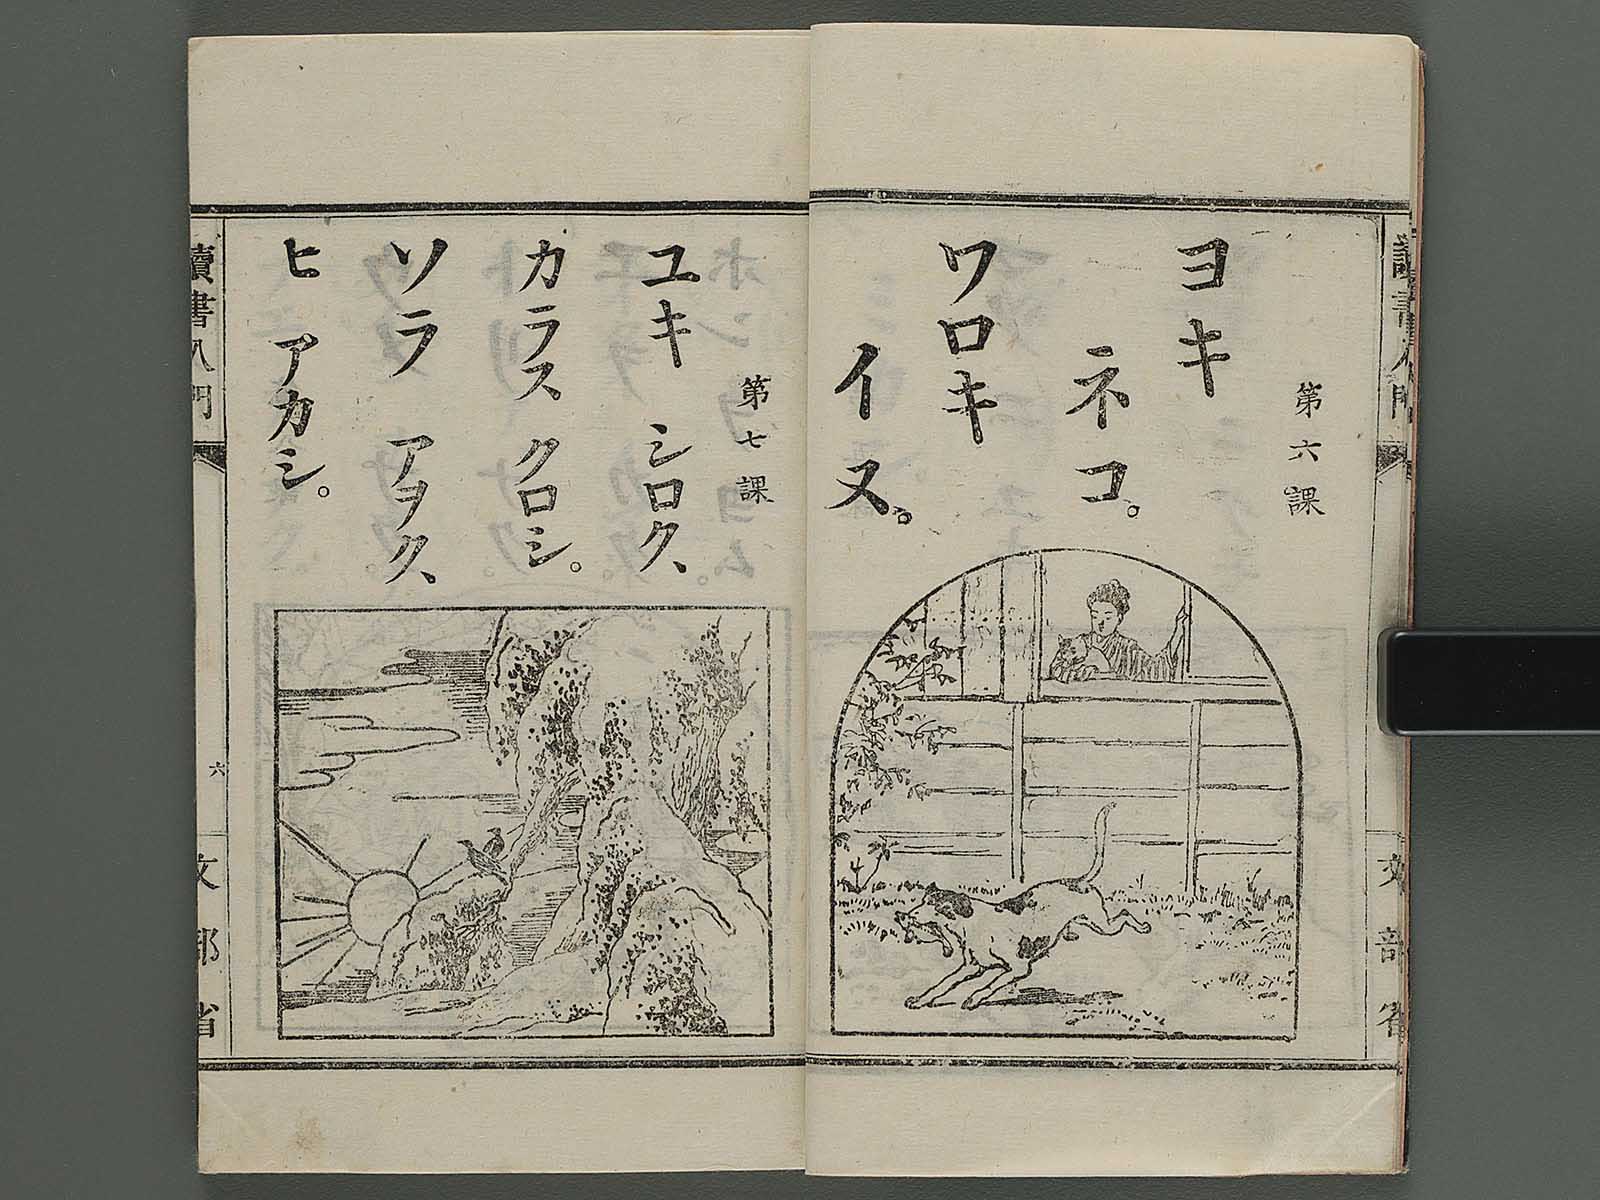 讀書入門
第六課
ヨキ
ネコ。
ワロキ
イヌ。
文部省
第七課
ユキ シロク、
カラス クロシ。
ソラ アヲク、
ヒ アカシ。
讀書入門
六
文部省